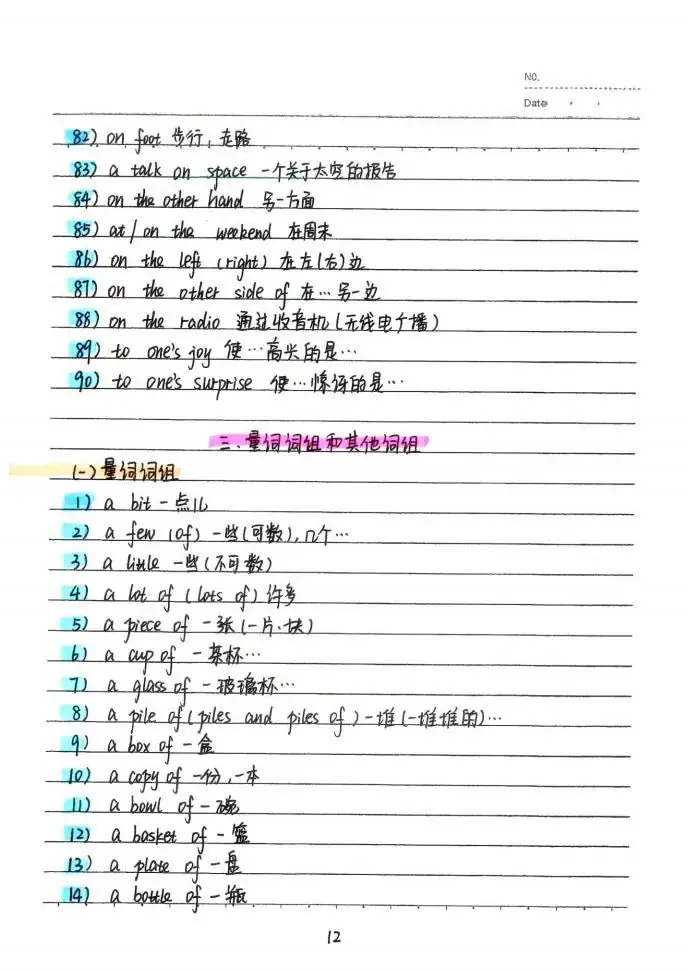 NO.
Date
82) on foot 步行，走路
83) a talk on space 一个关于太空的报告
84) on the other hand 另一方面
85) at/on the weekend 在周末
86) on the left (right) 在左(右)边
87) on the other side of 在…另一边
88) on the radio 通过收音机(无线电广播)
89) to one's joy 使…高兴的是…
90) to one's surprise 使…惊讶的是…
三、量词词组和其他词组
(一)量词词组
1) a bit 一点儿
2) a few (of) 一些(可数),几个…
3) a little 一些(不可数)
4) a lot of (lots of) 许多
5) a piece of 一张(一片、块)
6) a cup of 一茶杯…
7) a glass of 一玻璃杯…
8) a pile of (piles and piles of) 一堆(一堆堆的)…
9) a box of 一盒
10) a copy of 一份,一本
11) a bowl of 一碗
12) a basket of 一篮
13) a plate of 一盘
14) a bottle of 一瓶
12